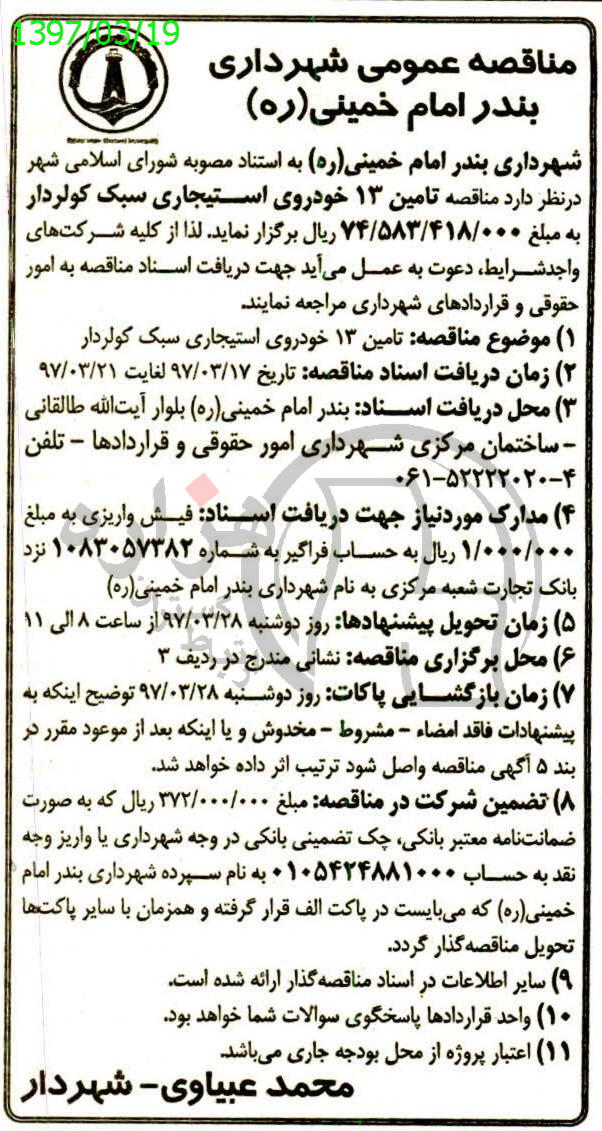 1397/03/19
مناقصه عمومی شهرداری
بندر امام خمینی(ره)
شهرداری بندر امام خمینی(ره) به استناد مصوبه شورای اسلامی شهر
درنظر دارد مناقصه تامین ۱۳ خودروی استیجاری سبک کولردار
به مبلغ ۷۴/۵۸۳/۴۱۸/۰۰۰ ریال برگزار نماید. لذا از کلیه شرکت‌های
واجدشرایط، دعوت به عمل می‌آید جهت دریافت اسناد مناقصه به امور
حقوقی و قراردادهای شهرداری مراجعه نمایند.
۱) موضوع مناقصه: تامین ۱۳ خودروی استیجاری سبک کولردار
۲) زمان دریافت اسناد مناقصه: تاریخ ۹۷/۰۳/۱۷ لغایت ۹۷/۰۳/۲۱
۳) محل دریافت اسناد: بندر امام خمینی(ره) بلوار آیت‌الله طالقانی
– ساختمان مرکزی شهرداری امور حقوقی و قراردادها – تلفن
۰۶۱-۵۲۲۲۲۰۲۰-۴
۴) مدارک موردنیاز جهت دریافت اسناد: فیش واریزی به مبلغ
۱/۰۰۰/۰۰۰ ریال به حساب فراگیر به شماره ۱۰۸۳۰۵۷۳۸۲ نزد
بانک تجارت شعبه مرکزی به نام شهرداری بندر امام خمینی(ره)
۵) زمان تحویل پیشنهادها: روز دوشنبه ۹۷/۰۳/۲۸ از ساعت ۸ الی ۱۱
۶) محل برگزاری مناقصه: نشانی مندرج در ردیف ۳
۷) زمان بازگشایی پاکات: روز دوشنبه ۹۷/۰۳/۲۸ توضیح اینکه به
پیشنهادات فاقد امضاء – مشروط – مخدوش و یا اینکه بعد از موعود مقرر در
بند ۵ آگهی مناقصه واصل شود ترتیب اثر داده خواهد شد.
۸) تضمین شرکت در مناقصه: مبلغ ۳۷۲/۰۰۰/۰۰۰ ریال که به صورت
ضمانت‌نامه معتبر بانکی، چک تضمینی بانکی در وجه شهرداری یا واریز وجه
نقد به حساب ۰۱۰۵۴۲۴۸۸۱۰۰۰ به نام سپرده شهرداری بندر امام
خمینی(ره) که می‌بایست در پاکت الف قرار گرفته و همزمان با سایر پاکت‌ها
تحویل مناقصه‌گذار گردد.
۹) سایر اطلاعات در اسناد مناقصه‌گذار ارائه شده است.
۱۰) واحد قراردادها پاسخگوی سوالات شما خواهد بود.
۱۱) اعتبار پروژه از محل بودجه جاری می‌باشد.
محمد عبیاوی- شهردار